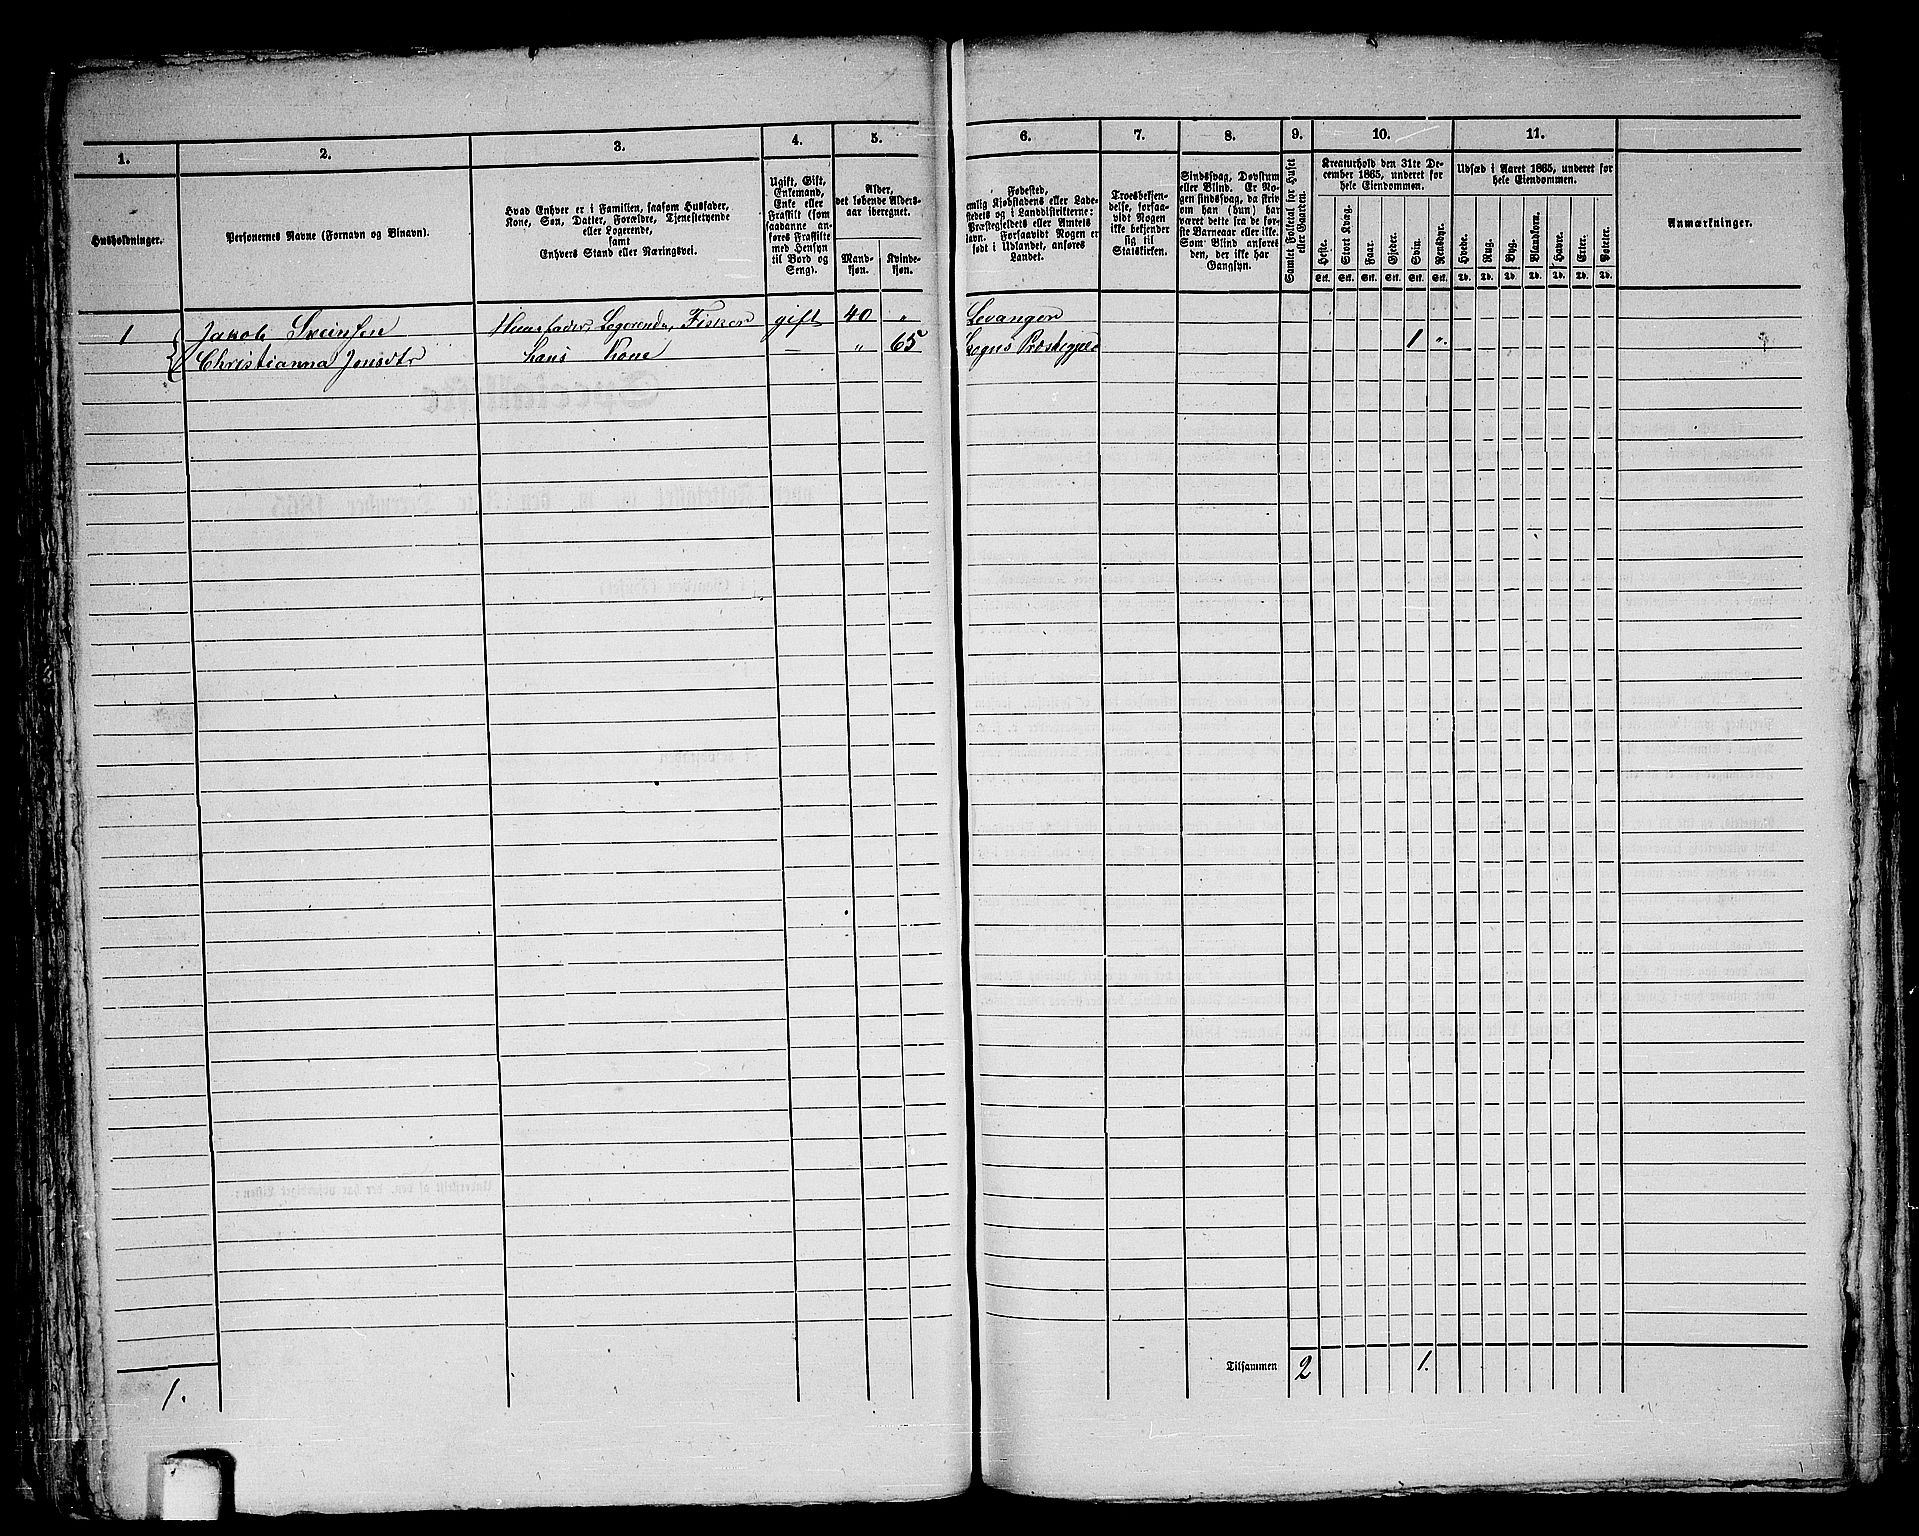 1. 2. 3. 4. 5. 6. 7. 8. 9. 10. 11.
Husholdninger.
Personernes Navne (Fornavn og Binavn).
Hvad Enhver er i Familien, saasom Husfader,
Kone, Søn, Datter, Forældre, Tjenestetyende
eller Logerende,
samt
Enhvers Stand eller Næringsvei.
Ugift, Gift,
Enkemand,
Enke eller
Fraskilt (som
saadanne an-
føres Fraskilte
med Hensyn
til Bord og
Seng).
Alder,
det løbende Alders-
aar iberegnet.
Mand-
kjøn.
Kvinde-
kjøn.
Fødested,
nemlig Kjøbstadens eller Lade-
stedets og i Landdistrikterne:
Præstegjeldets eller Amtets
Navn. Forsaavidt Nogen er
født i Udlandet, anføres
Landet.
Troesbekjen-
delse, forsaa-
vidt Nogen
ikke bekjender
sig til
Statskirken.
Sindssvag, Døvstum
eller Blind. Er No-
gen sindssvag, da skriv
om han (hun) har
været dette fra de før-
ste Barneaar eller ikke.
Som Blind anføres
den, der ikke har
Gangsyn.
Samlet Folketal for Huset
eller Gaarden.
Kreaturhold den 31te De-
cember 1865, underet for
hele Eiendommen.
Heste. Stort Kvæg. Faar. Gjeder. Svin. Rensdyr.
Stk. Stk. Stk. Stk. Stk. Stk.
Udsæd i Aaret 1865, underet for
hele Eiendommen.
Hvede. Rug. Byg. Blandkorn. Havre. Erter. Poteter.
Td. Td. Td. Td. Td. Td. Td.
Anmærkninger.
1 Jakob Sveinsen Huusfader, Logerende, Fisker gift 40 " Levanger
Christianna Jonsdtr hans Kone — " 65 1 "
Tilsammen 2 1.
1.